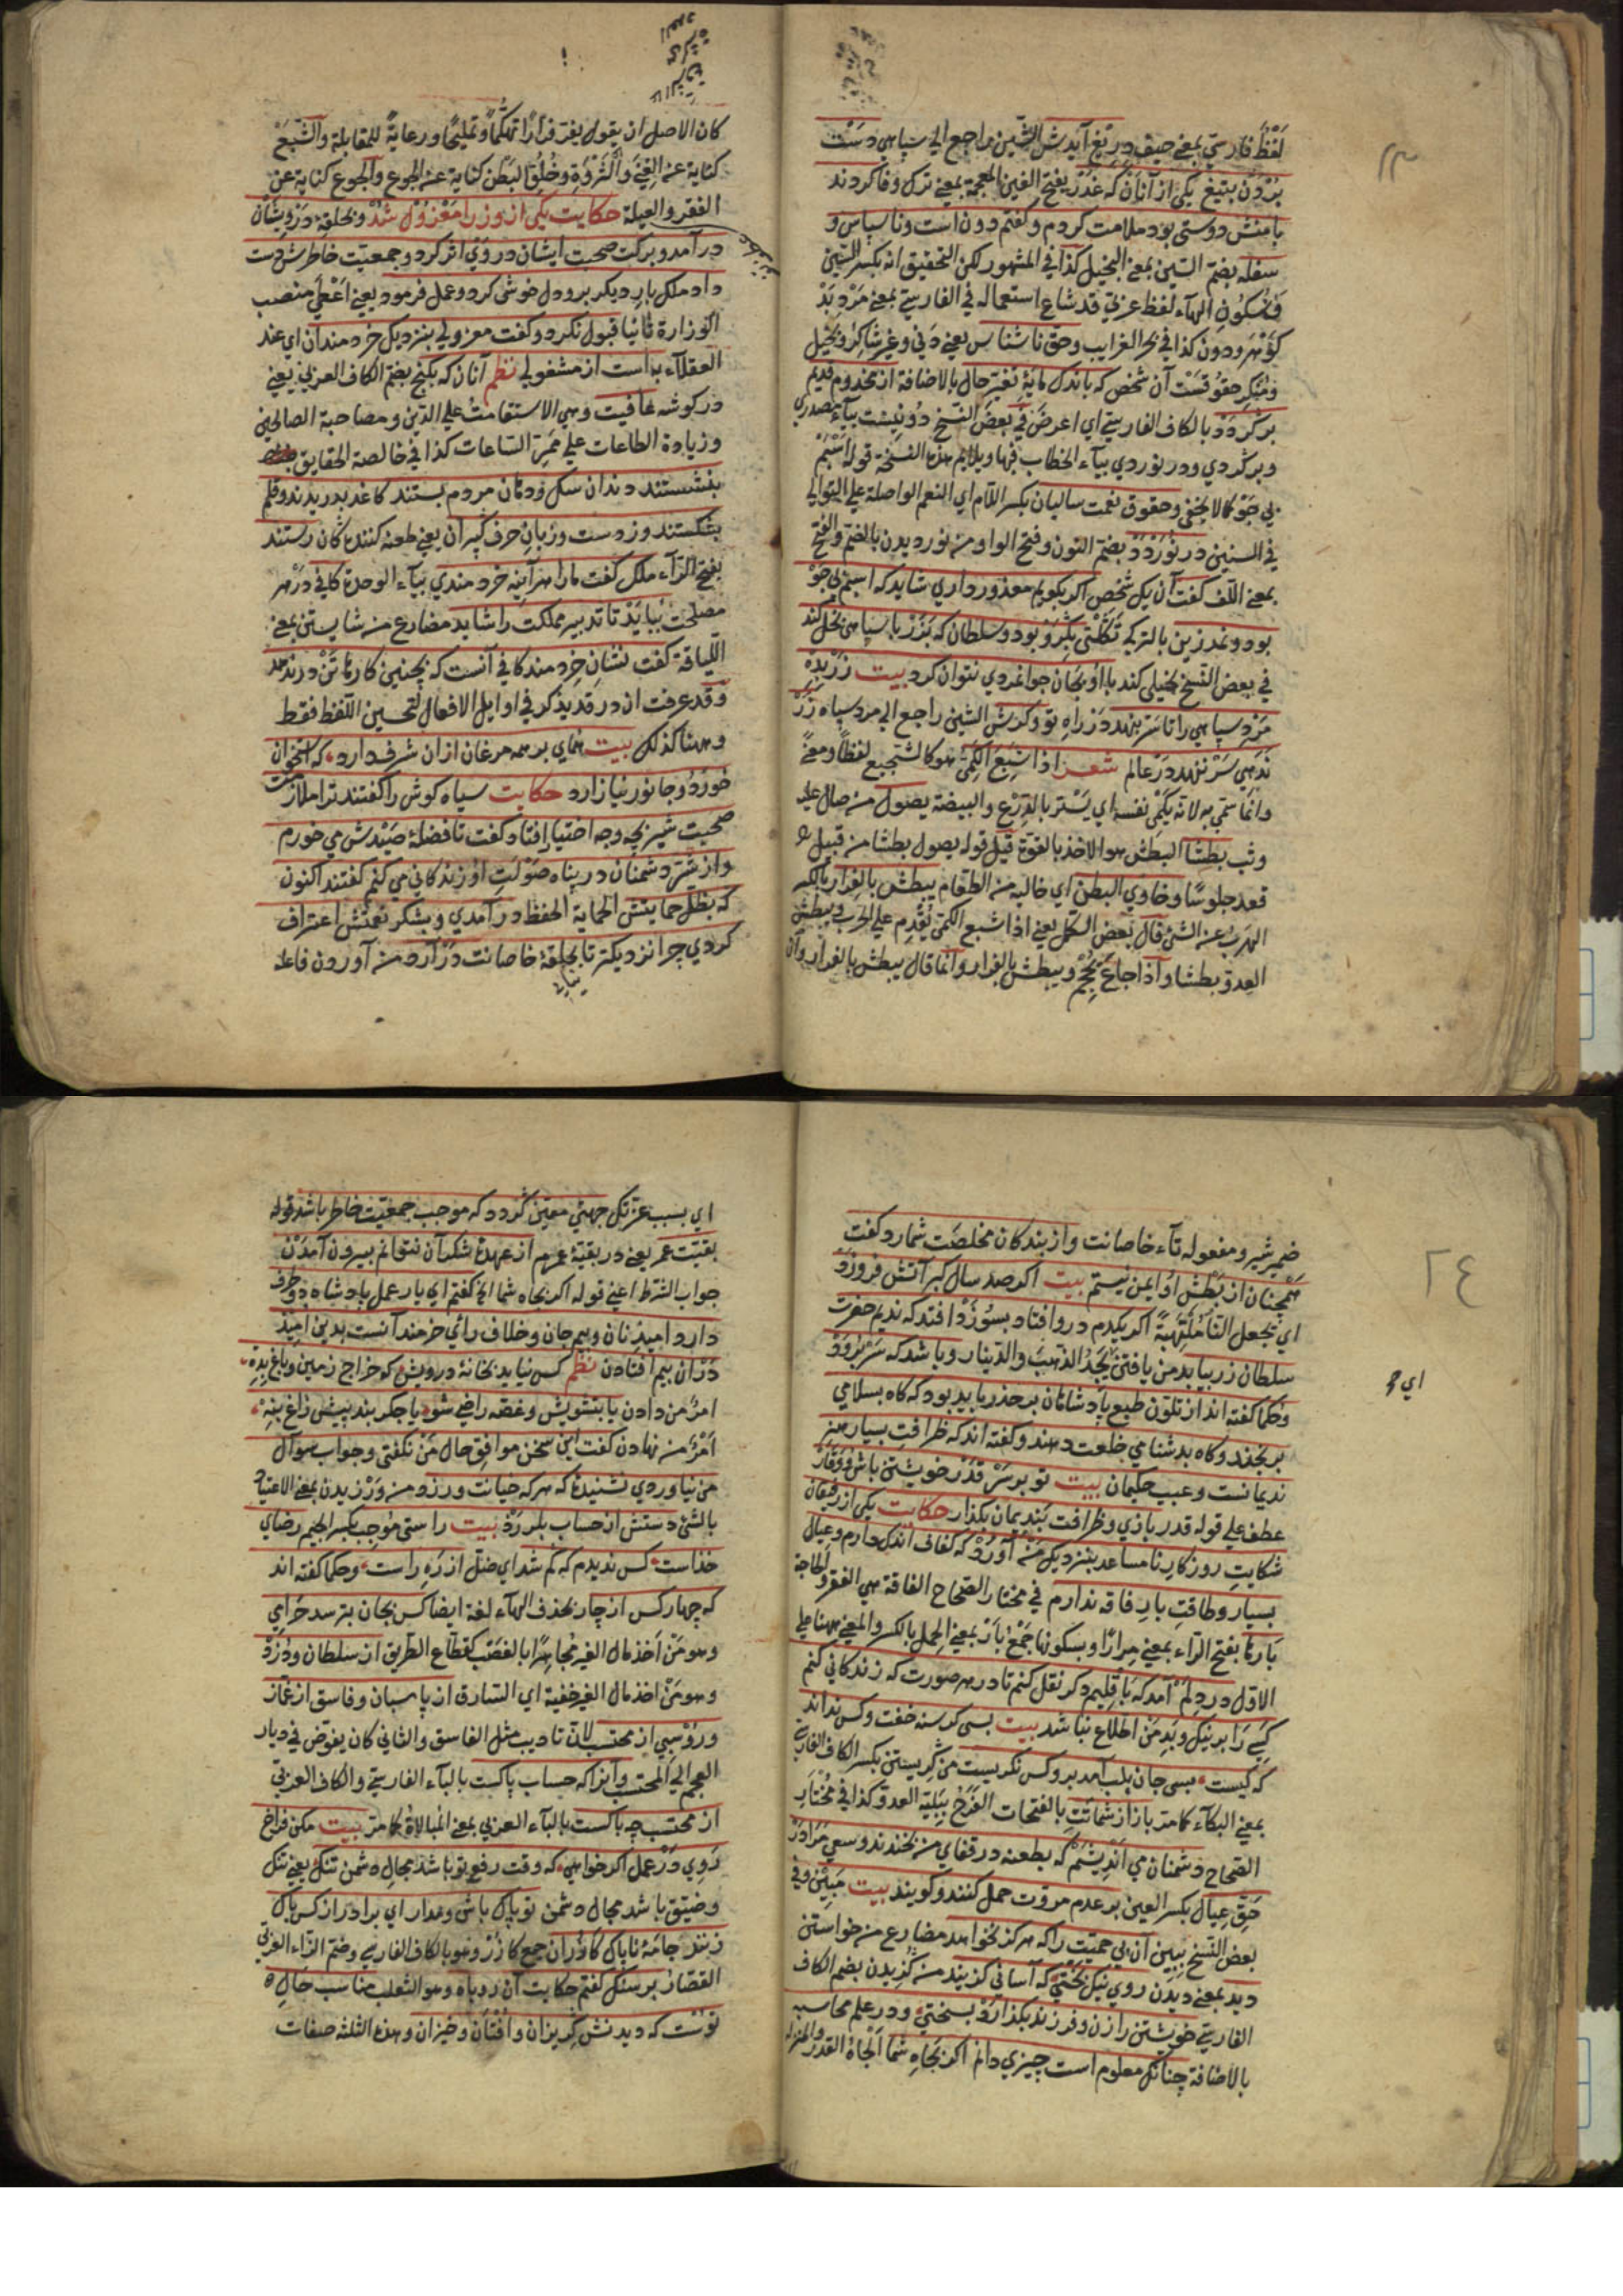 ٢٣
لَفْظٌ فارسيّ بمعنى حيف دريغ آيدش الشين راجع الي سپاهي دست
بُرْدَن بتيغ يكي از آنان كه غدر بفتح الغين المعجمة بمعنى ترك وفا كردند
با منش دوستي بود ملامت كردم وكفتم دون است وناسپاس و
سفله بضم السين بمعنى البخيل كذا في المشهور لكن التحقيق انه بكسر السين
وسُكُون الهآء لفظ عربيّ قد شاع استعماله في الفارسيّ بمعنى مرد بَدْ
كَوْهَر ودون كذا في بحر الغرايب وحق ناشناس يعني دَني وغير شاكر وبخيل
ومُنكِر حقوقست آن شخص كه باندك مايۀ تغيّر حال بالاضافة از مخدوم قديم
بركَرْدَدْ بالكاف الفارسيّ اي اعرض في بعض النسخ دونيست بيآء مصدري
وبركردي ودر نوردي بيآء الخطاب فيها ويلايم هذه النسخة قوله اَسْبَم
بي جَوْ كما لا يخفى وحقوق نعمت ساليان بكسر اللام اي النعم الواصلة على التوالي
في السنين در نَوَرْدَدْ بضم النون وفتح الواو من نورديدن بالضم والفتح
بمعنى اللف كفت آن يك شخص اكر بكويم معذور داري شايد كه اسبم بي جَوْ
بود ونمد زين بالتركي تَكَلْتى بكِرَوْ بود وسلطان كه بَزَرْ با سپاهي بخل كند
في بعض النسخ بخيلي كند با او بجان جوانمردي نتوان كرد بيت زَرْ بدِهْ
مَرْدِ سپاهي را تا سَرْ بنهد دَرْ راهِ تو وكرش الشين راجع الي مرد سپاه زَرْ
نَدَهي سَرْ بنهد دَرْ عالم شعر اذا شَبِعَ الكَمِيُّ هو كالشجيع لفظاً ومعنىً
وانما سمّي به لانه يَكْمِي نفسه اي يَسْتُر بالدّرع والبيضة يصول من صال عليه
وثب بطشًا البطش هو الاخذ بالقوة قيل قوله يصول بطشا من قبيل
قعد جلوسًا وخاوي البطن اي خاليه من الطعام يبطش بالفِرار بالكسر
الهرب عن الشئ قال بعض الكمل يعني اذا شبع الكمي يُقْدِم على الحرب ويبطش
العدوّ بطشا واذا جاع يُحْجِم ويبطش بالفرار وانما قال يبطش بالفرار وان
كان الاصل ان يقول يفرّ فرارًا تهكّمًا وتمليحًا ورعايةً للمقابلة والشّبَع
كناية عن الغِنى والثَّرْوَةِ وخُلُوّ البَطْن كناية عن الجوع والجوع كناية عن
الفقر والعيلة حكايت يكي از وزرا مَعْزُول شُدْ وبحلقۀ دَرْويشان
درآمد وبركت صحبت ايشان در وَي اثر كرد وجمعيّت خاطرش دست
داد ملك بار ديكر برو دل خوشى كرد وعمل فرمود يعني اعطي منصب
الوزارة ثانيا قبول نكرد وكفت معزولي بنزديك خردمندان اي عند
العقلآء به است از مشغولي نظم آنان كه بكنج بضم الكاف العربي يعني
دركوشه عافيت وهي الاستقامت على الدّين ومصاحبة الصالحين
وزيادة الطاعات على ممرّ الساعات كذا في خالصة الحقايق
بنشستند دندان سك ودهان مردم بستند كاغد بدريدند وقلم
بشكستند وز دست وزبانِ حرف كيران يعني طعنه كنندكان رستند
بفتح الرآء ملك كفت مارا هرآينه خردمندي بيآء الوحدة كافي دَرْ هر
مصلحت بِبايَدْ تا تدبير مملكت را شايد مضارع من شايستن بمعنى
اللّياقة كفت نشانِ خِردمند كافي آنست كه بچنين كارها تَنْ درندهد
وقد عرفت ان در قد يذكر في اوايل الافعال لتحسين اللفظ فقط
وههنا كذلك بيت هماي برهمه مرغان ازان شرف دارد كه استخوان
خورد وجانور نيازارد حكايت سياه كوش را كفتند ترا ملازمت
صحبت شير بچه وجه اختيار افتاد كفت تا فضلۀ صَيْدش مي خورم
واز شرّ دشمنان در پناه صَوْلَتِ او زندكاني مي كنم كفتند اكنون
كه بظل حمايتش الحماية الحفظ درآمدي وبشكر نعمتش اعتراف
كردي چرا نزديكتر نيايي تا بحلقۀ خاصانت دَرْ آرد من آوردن فاعله
٢٤
ضمير شير ومفعوله تآء خاصانت واز بندكان مخلصت شمارد كفت
همچنان از بَطْشِ او ايمن نيستم بيت اكر صد سال كبر آتش فروزد
اي يجعل النار مُلْتَهِبَةً اكر يكدم درو افتاد بسوزَدْ افتد كه نديم حضرت
سلطان زر بيابد من يافتن يجد الذهب والدينار وباشد كه سَرْ بِرَوَدْ
وحكما كفته اند از تلوّن طبع پادشاهان برحذر بايد بود كه كاه بسلامي
اي
برنجند وكاه بدشنامي خلعت دهند وكفته اند كه ظرافتِ بسيار هنر
نديمانست وعيب حكيمان بيت تو بر سَرْ قَدْر خويشتن باش ووَقارْ
عطف على قوله قدر بازي وظرافت بنديمان بكذار حكايت يكي از رفيقان
شكايتِ روزكارِ نامساعد بنزديك مَنْ آوُرْد كه كفاف اندك دارم وعيال
بسيار وطاقتِ بارِ فاقه ندارم في مختار الصحاح الفاقة هي الفقر والحاجة
بارها بفتح الرآء بمعنى مِرارًا وبسكونها جَمْعُ بارْ بمعنى الحمل بالكسر والمعنى ههنا على
الاوّل در دلم آمد كه باقليم دكر نقل كنم تا در هر صورت كه زندكاني كنم
كَسي را بر نيك وبَدِ من اطلاع نباشد بيت بسى كرسنه خفت وكس نداند
كه كيست بسى جان بلب آمد برو كس نكريست من كِريستن بكسر الكاف الفارسيّ
بمعنى البكآء كما مرّ باز از شماتَتِ بالفتحات الفَرَحُ بِبَلِيّة العدوّ كذا في مختار
الصحاح دشمنان مي اَنْديشَمْ كه بطعنه در قفاي من بخندند وسعي مَرا دَرْ
حَقّ عِيال بكسر العين بر عدم مروّت حمل كنند وكويند بيت مَبين وفي
بعض النسخ ببين آن بي حميّت را كه هركز نخواهد مضارع من خواستن
ديد بمعنى ديدن روي نيك بختي كه آساني كزيند من كُزيدن بضم الكاف
الفارسيّ خويشتن را زن وفرزند بكذارَدْ بسختي ودر علم محاسبه
بالاضافة چنانك معلوم است چيزي دانم اكر بجاهِ شما الجاه القدر والمنزلة
اي بسبب عزّتك جهتي معيّن كردد كه موجب جمعيّت خاطر باشد قوله
بقيّت عمر يعني در بقيّۀ عمرم از عهدۀ شكر آن نتوانم بيرون آمَدَنْ
جواب الشرط اعني قوله اكر بجاه شما الخ كفتم اي يار عمل پادشاه دو طرف
دارد اميدِ نان وبيم جان وخلاف رأي خردمندآنست بدين اميد
دَرْ آن بيم افتادن نظم كس نيايد بخانۀ درويش كه خراج زمين وباغ بِدِهْ
امرٌ من دادن يا بتشويش وغصّه راضي شو يا جكربند پيش زاغ بنِهْ
اَمْرٌ من نهادن كفت اين سخن موافق حال مَنْ نكفتى وجواب سوآل
من نياوردي نشنيدۀ كه هركه خيانت ورزد من وَرْزيدن بمعنى الاعتياد
بالشئ دستش از حساب بلرزدْ بيت راستى مُوجِب بكسر الجيم رضاي
خداست كس نديدم كه كم شد اي ضلّ از رَهِ راست وحكما كفته اند
كه چهار كس از چار بحذف الهآء لغة ايضا كس بجان بترسد حَرامي
وهو مَنْ اَخذ مال الغير مُجاهِرًا بالغصب كقطّاع الطريق از سلطان ودُزدْ
وهو مَنْ اخذ مال الغير خفية اي السارق از پاسبان وفاسق از غمّاز
وروسبي از محتسب لان تاديب مثل الفاسق والثاني كان يفوّض في ديار
العجم الي المحتسب وآنرا كه حساب پاكست بالبآء الفارسيّ والكاف العربي
از محتسب چه باكست بالبآء العربي بمعنى المبالاة كما مرّ بيت مكن فراخ
رَوي دَرْ عمل اكر خواهي كه وقت رفع تو باشد مجالِ دشمن تنك يعني تنك
وضيّق باشد مجال دشمن تو پاك باش ومدار اي برادر از كس باك
زنند جامۀ ناپاك كازُران جمع كازُرْ وهو بالكاف الفارسي وضم الزاء العربي
القصّار بر سنك كفتم حكايت آن روباه وهو الثعلب مناسب حالِ
توست كه ديدنش كريزان واُفتان وخيزان وهذه الثلثه صفات